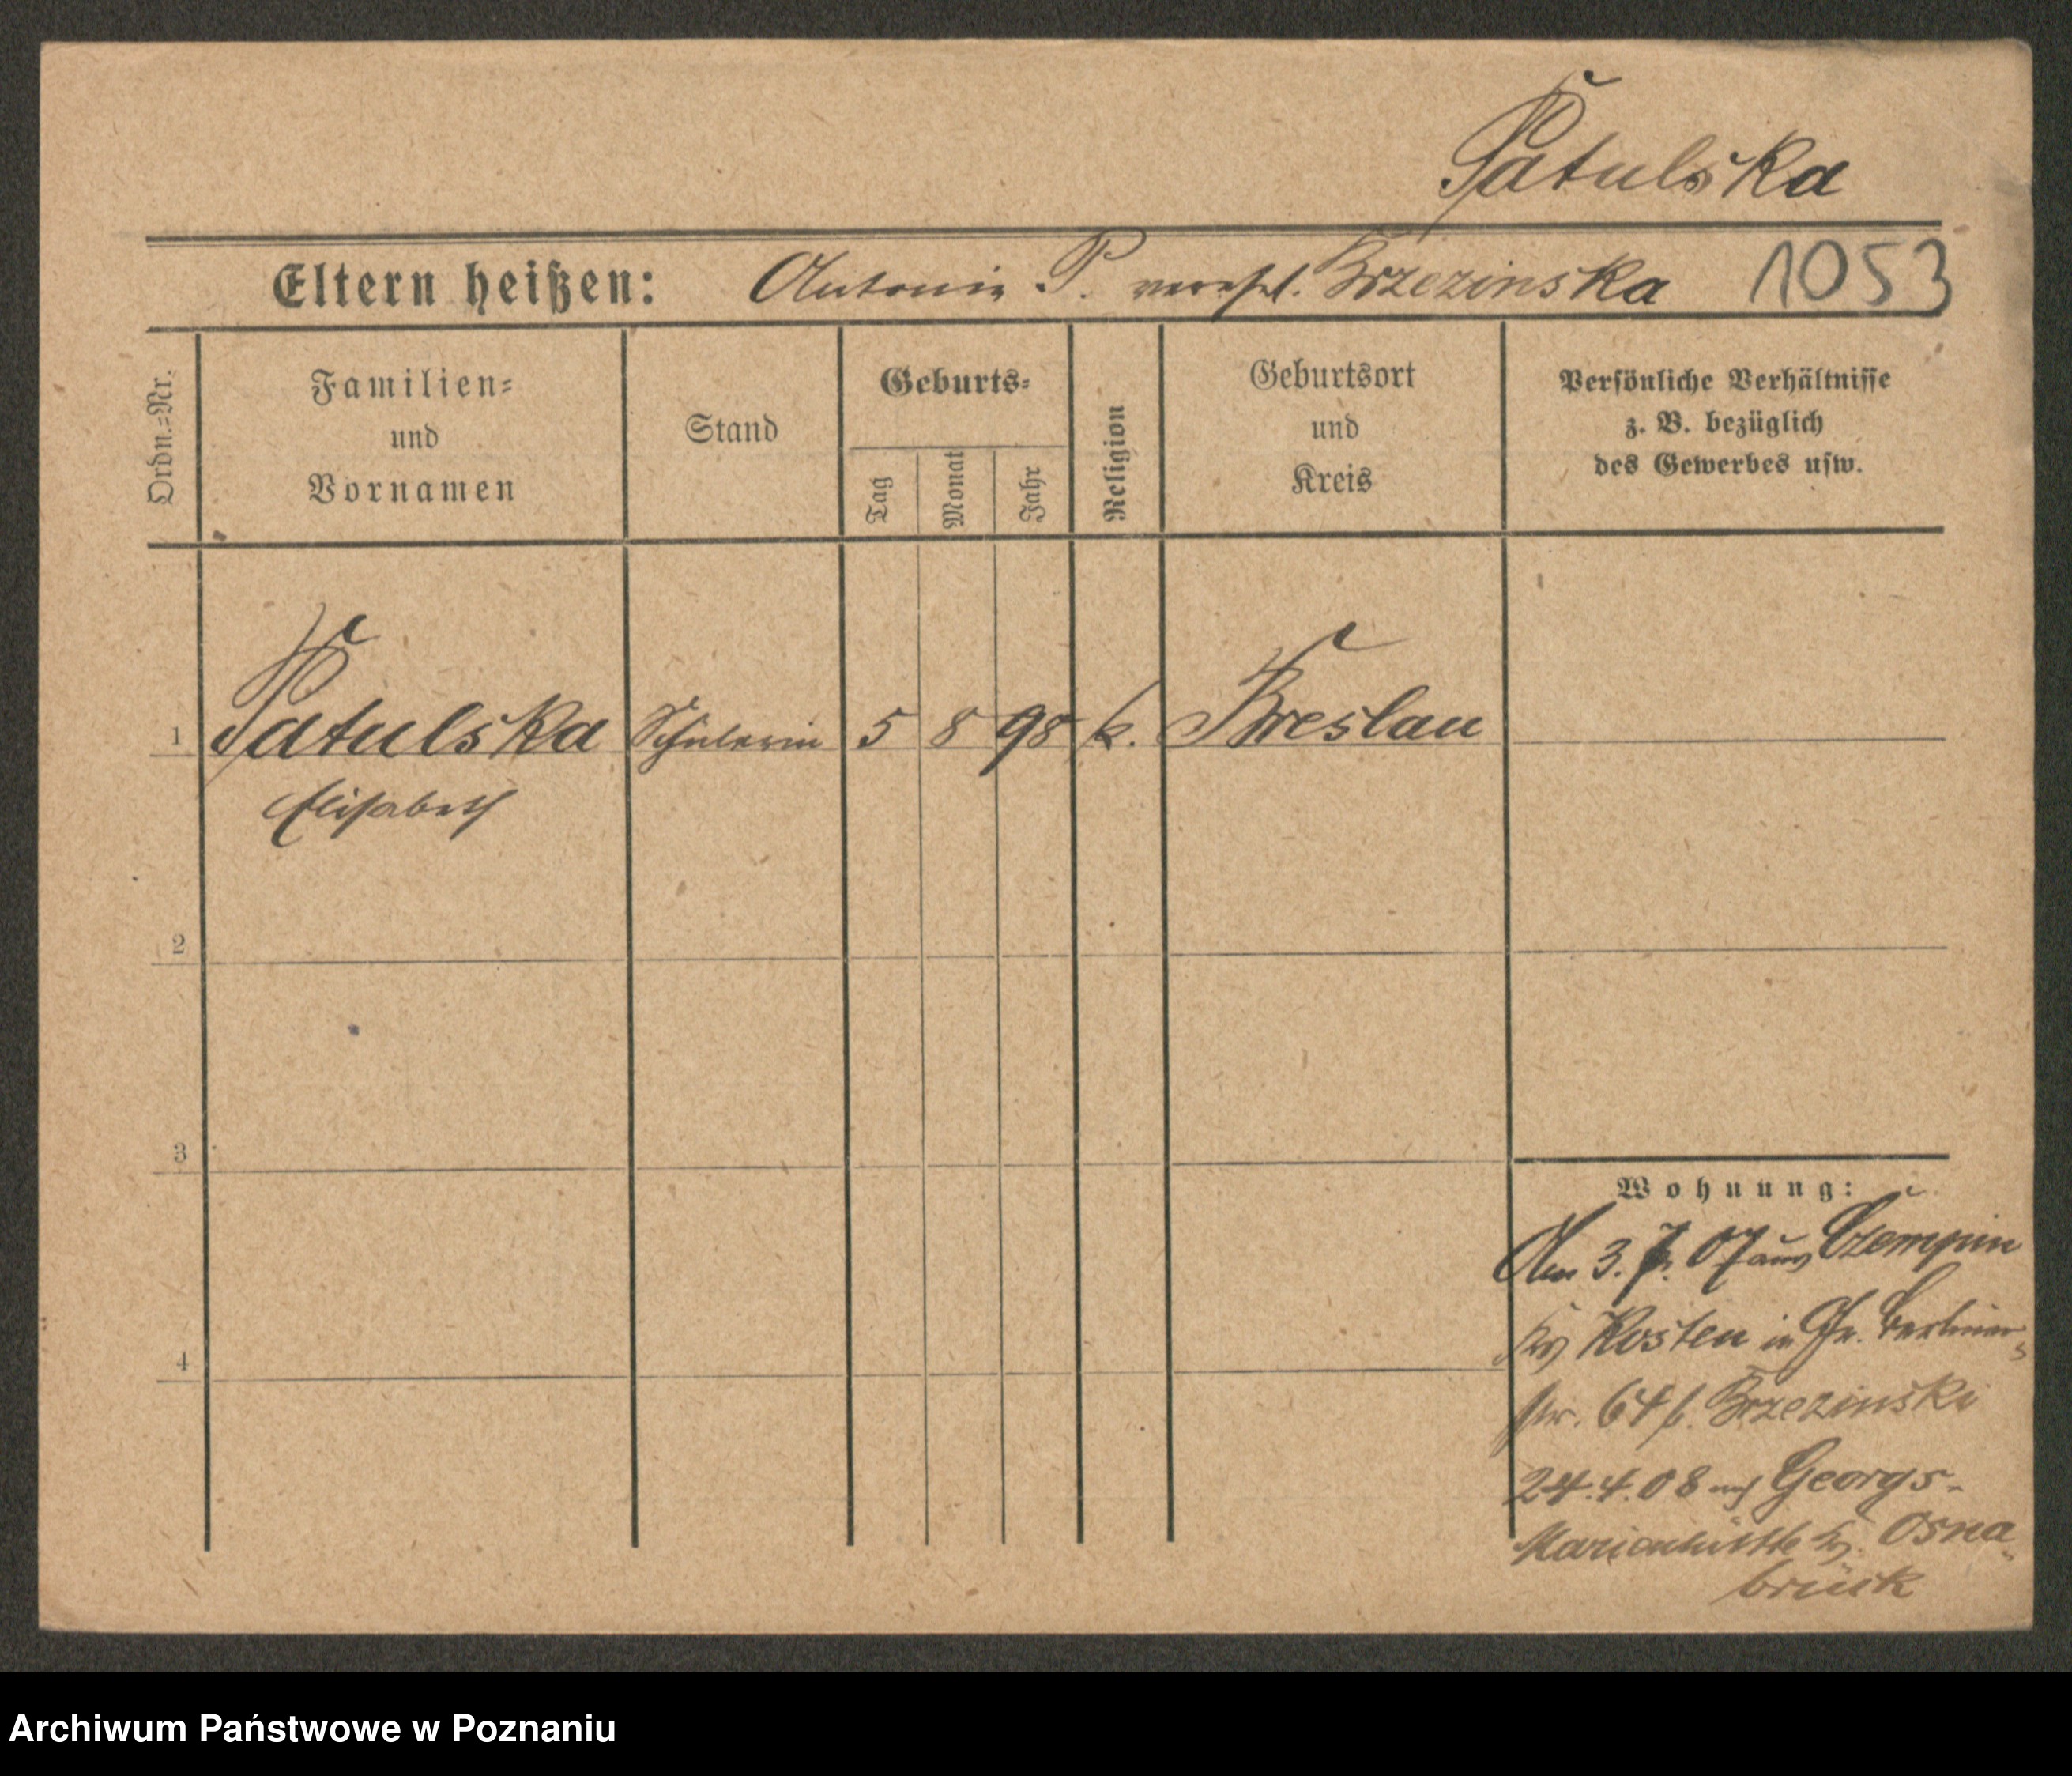 Patulska
Eltern heißen: Antonie P. verehel. Brzezinska 1053
Ordn.=Nr.
Familien=
und
Vornamen
Stand
Geburts=
Tag
Monat
Jahr
Religion
Geburtsort
und
Kreis
Persönliche Verhältnisse
z. B. bezüglich
des Gewerbes usw.
1 Patulska Schülerin 5 8 98 k. Breslau
Elisabeth
2
3
4
Wohnung:
Am 3. 7. 07 aus Czempin
Krs Kosten in Gr. Berliner=
str. 64 b. Brzezinski
24.4.08 nach Georgs-
Marienhütte Osna=
brück
Archiwum Państwowe w Poznaniu